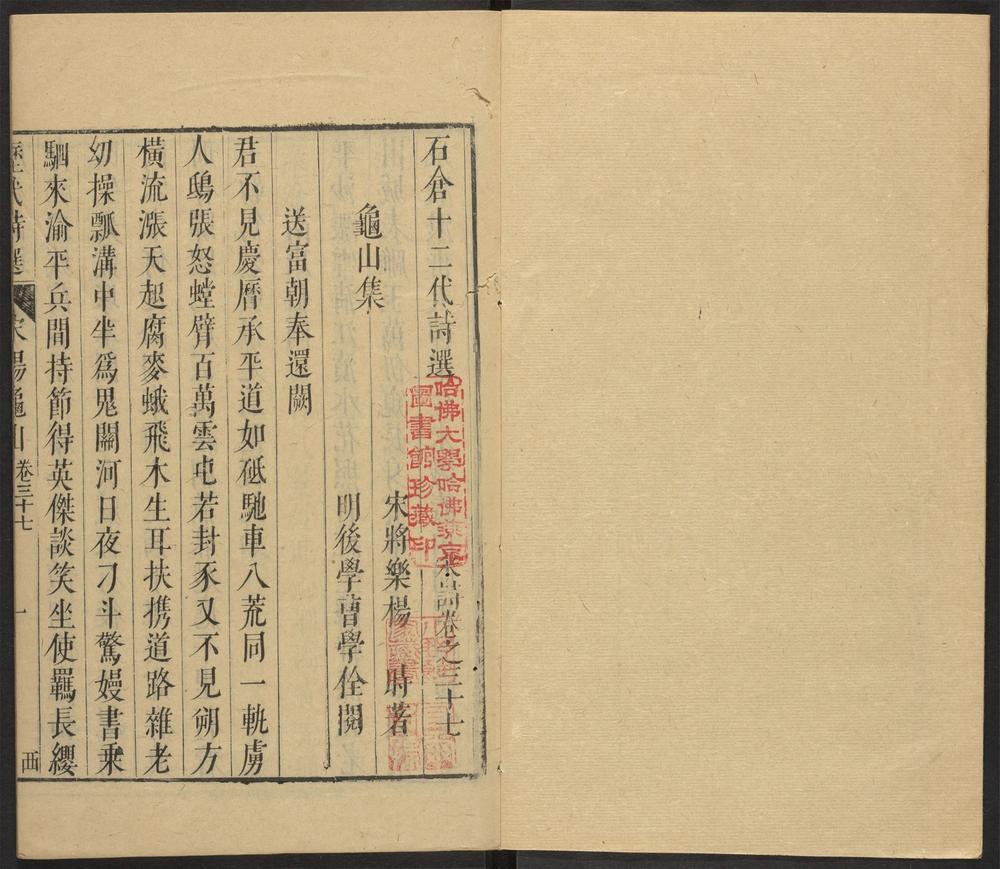 石倉十二代詩選
宋詩卷之三十七
哈佛大學哈佛燕京
圖書館珍藏印
宋將樂楊 時著
龜山集
明後學曹學佺閱
送富朝奉還闕
君不見慶曆承平道如砥馳車八荒同一軌虜
人鴟張怒螳臂百萬雲屯若封豕又不見朔方
橫流漲天起腐麥蛾飛木生耳扶携道路雜老
幼操瓢溝中半爲鬼關河日夜刁斗驚嫚書乗
駟來渝平兵間持節得英傑談笑坐使羈長纓
歷代詩選 宋楊龜山 卷三十七 一